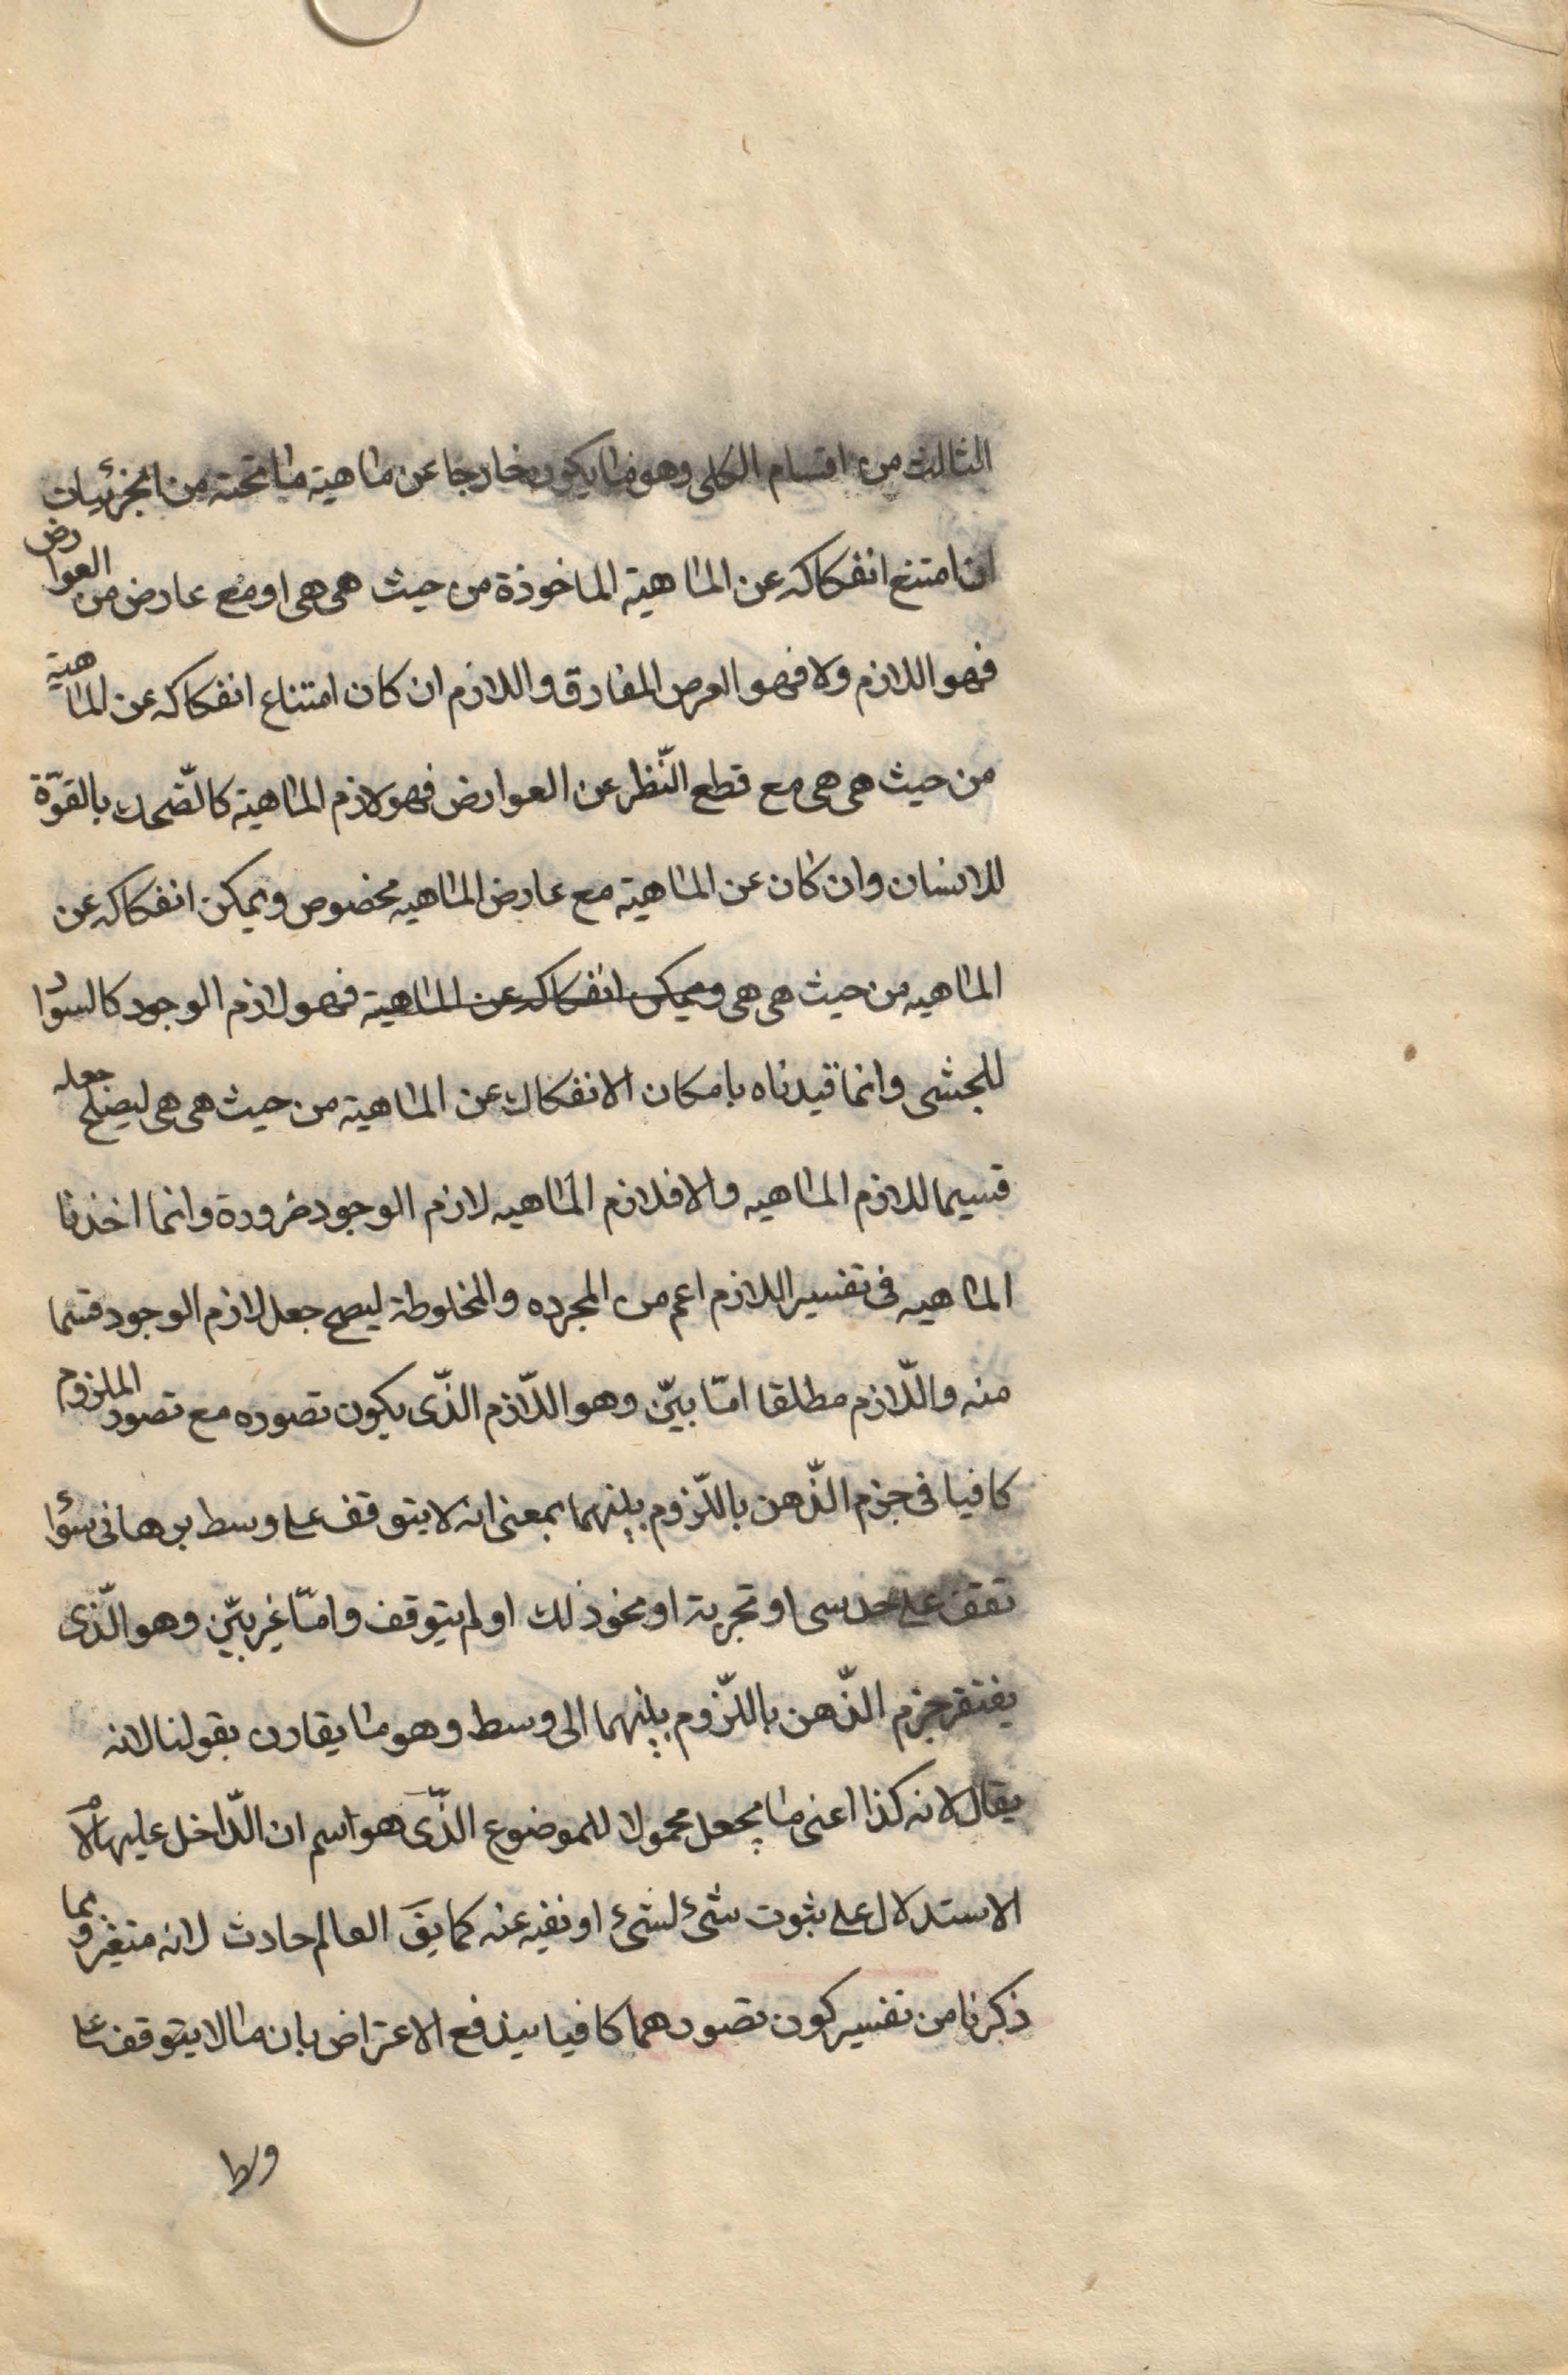 الثالث من اقسام الكلى وهو ما يكون خارجا عن ماهية ما تحته من الجزئيات
ان امتنع انفكاكه عن الماهية الماخوذة من حيث هى هى او مع عارض من العوارض
فهو اللازم ولا فهو العرض المفارق واللازم ان كان امتناع انفكاكه عن الماهية
من حيث هى هى مع قطع النّظر عن العوارض فهو لازم الماهية كالضّحك بالقوّة
للانسان وان كان عن الماهية مع عارض الماهيه مخصوص ويمكن انفكاكه عن
الماهيه من حيث هى هى ويمكن انفكاكه عن الماهية فهو لازم الوجود كالسواد
للحبشى وانما قيدناه بامكان الانفكاك عن الماهية من حيث هى هى ليصلح جعله
قسيما للازم الماهيه والا فلازم الماهيه لازم الوجود ضرورة وانما اخذنا
الماهيه فى تفسير اللازم اعم من المجرده والمخلوطة ليصح جعل لازم الوجود قسما
منه واللّازم مطلقا امّا بيّن وهو اللّازم الذّى يكون تصوره مع تصور الملزوم
كافيا فى جزم الذّهن باللّزوم بينهما بمعنى انه لا يتوقف على وسط برهانى سؤا
تقف على حدسى او تجربة او نحو ذلك او لم يتوقف وامّا غير بيّن وهو الذّى
يفتقر جزم الذّهن باللّزوم بينهما الى وسط وهو ما يقارن بقولنا لانه
يقال لانه كذا اعنى ما يجعل محمولا للموضوع الذّى هو اسم ان الدّاخل عليها لام
الاستدلال على ثبوت شئ لشئ او نفيه عنه كما يق العالم حادث لانه متغير وبما
ذكرنا من تفسير كون تصورهما كافيا يندفع الاعتراض بان ما لا يتوقف على
وسط